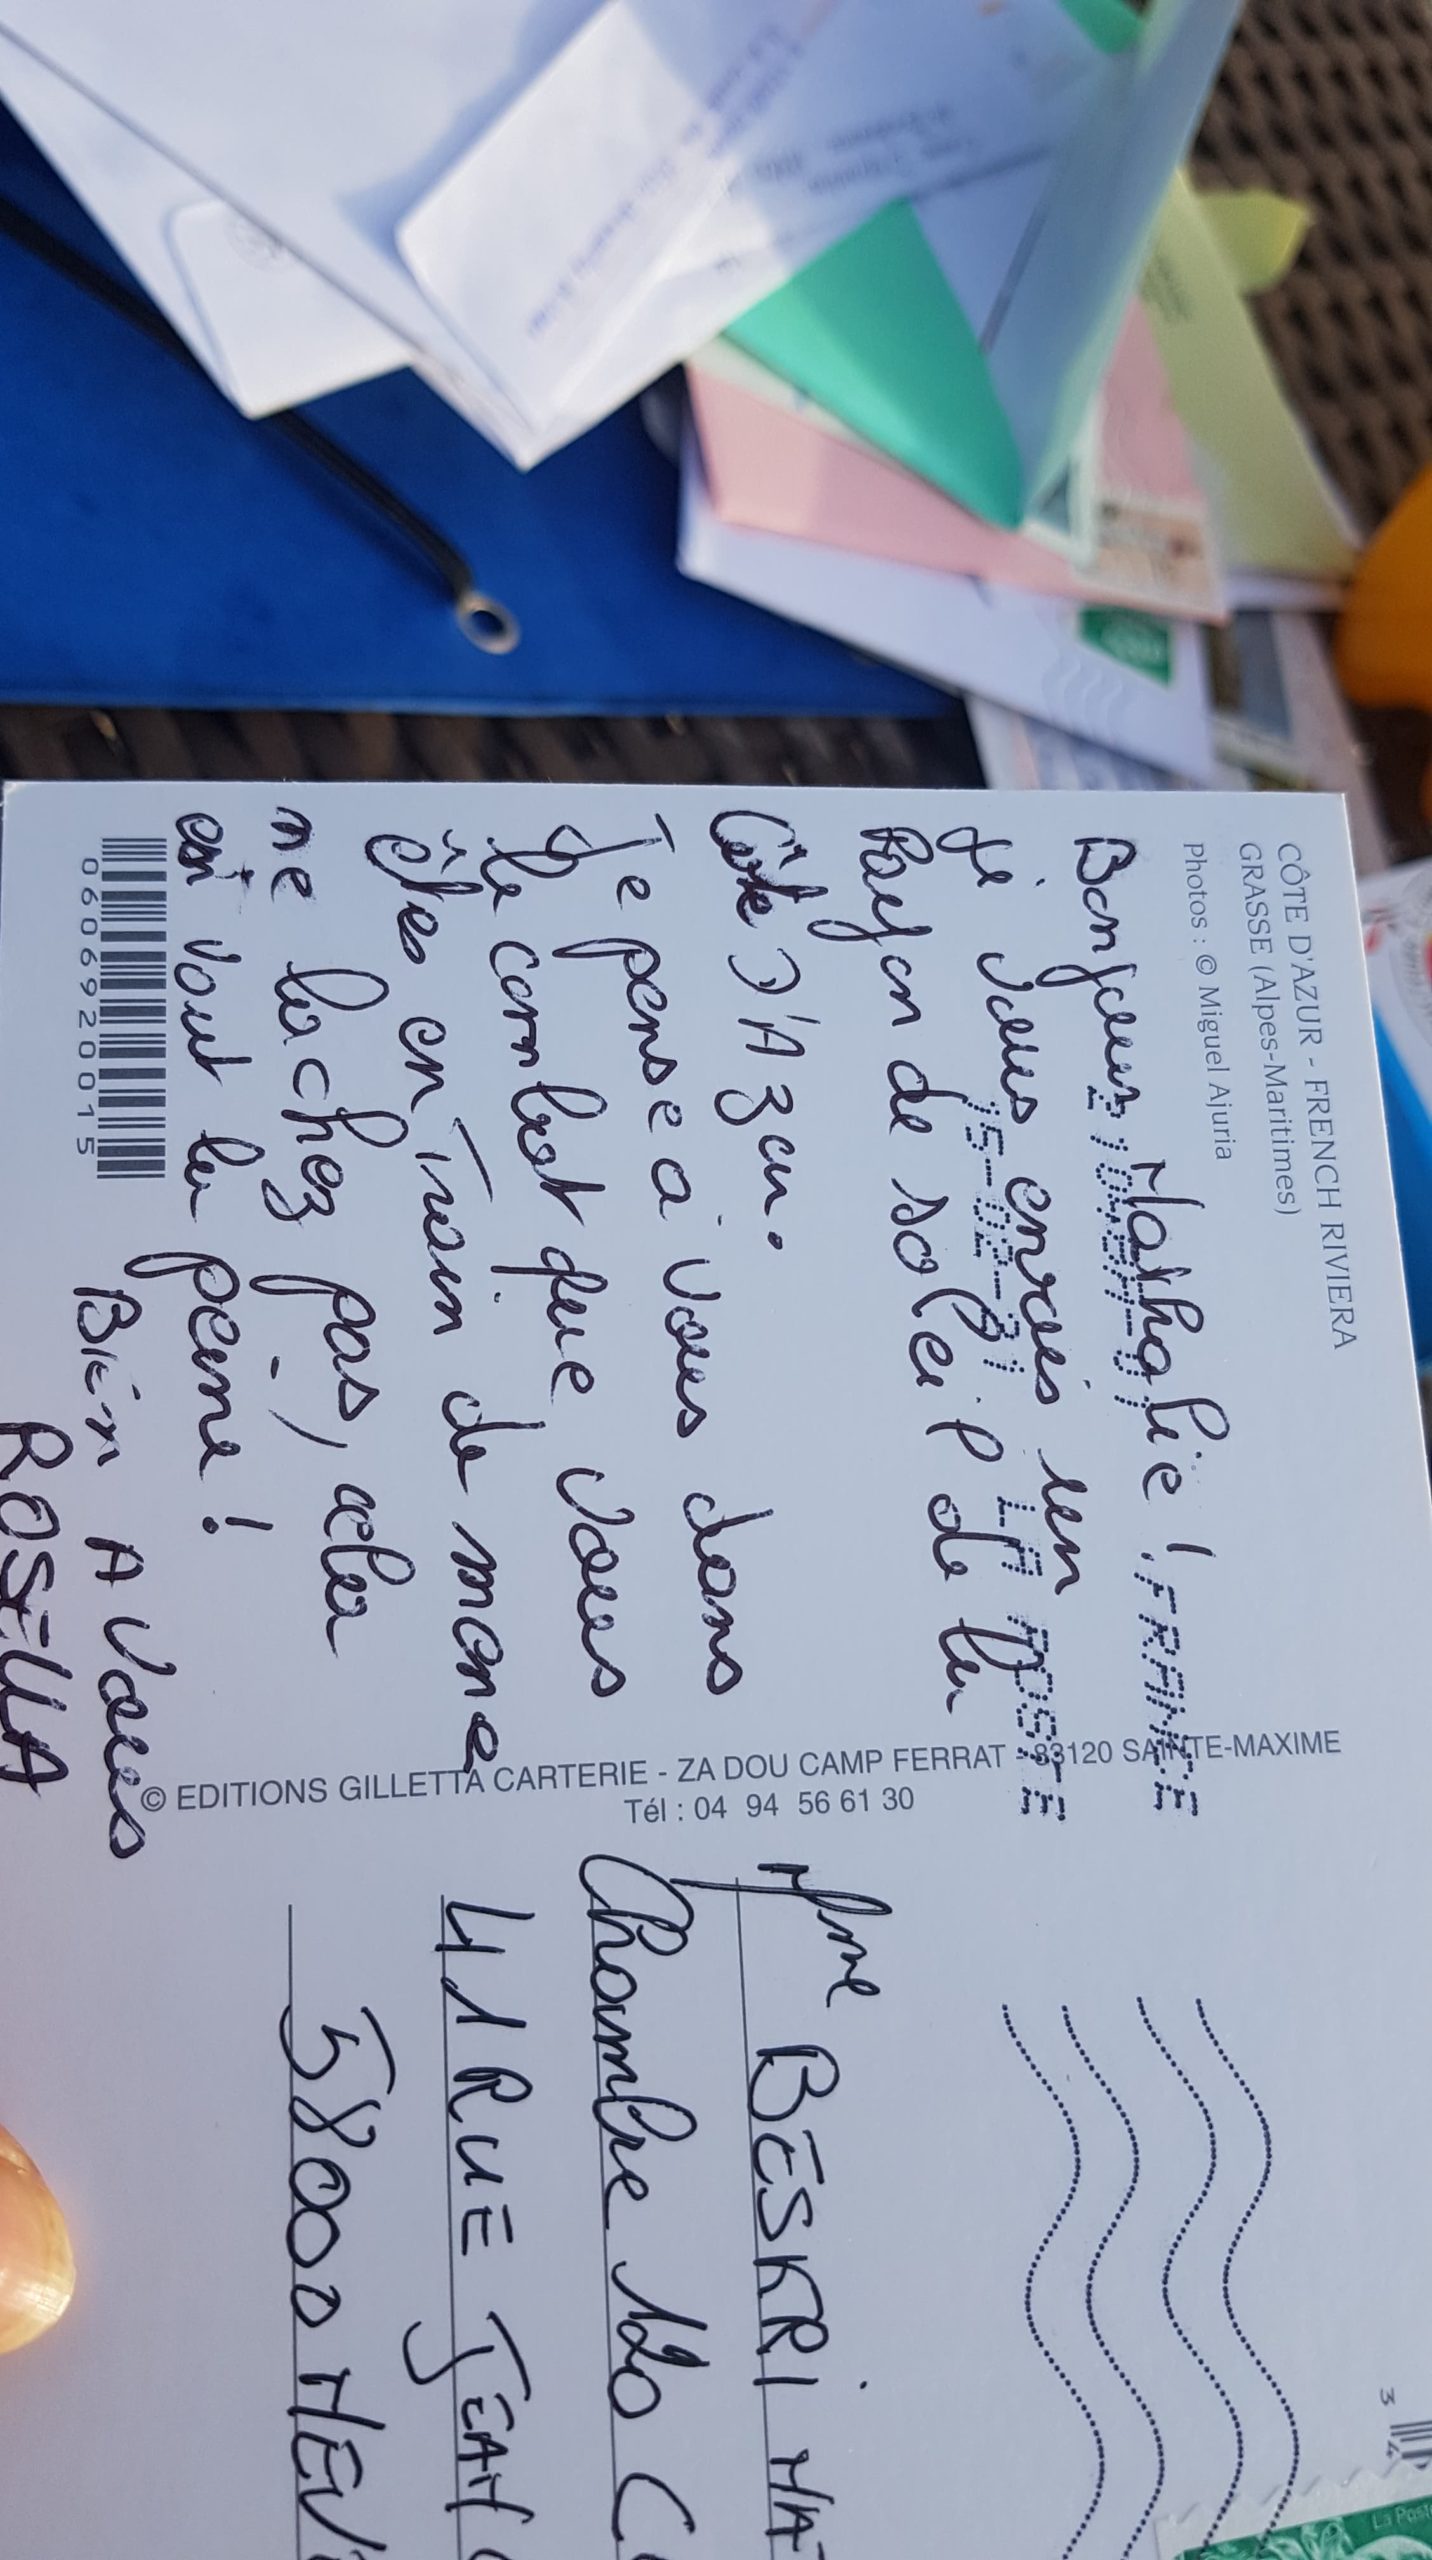 CÔTE D'AZUR - FRENCH RIVIERA
GRASSE (Alpes-Maritimes)
Photos : © Miguel Ajuria
Bonjour Mathalie !
je vous envois un
Rayon de soleil de la
Côte D'Azur.
Je pense à vous dans
le combat que vous
êtes en train de mene
ne lachez pas, cela
en vaut la peine !
Bien A Vous
ROSELLA
0606920015
FRANCE
LA POSTE
15-02-21
© EDITIONS GILLETTA CARTERIE - ZA DOU CAMP FERRAT - 83120 SAINTE-MAXIME
Tél : 04 94 56 61 30
Mme BESKRI MA
Chambre 120 C
41 RUE JEAN
58000 NEV
La Poste
3